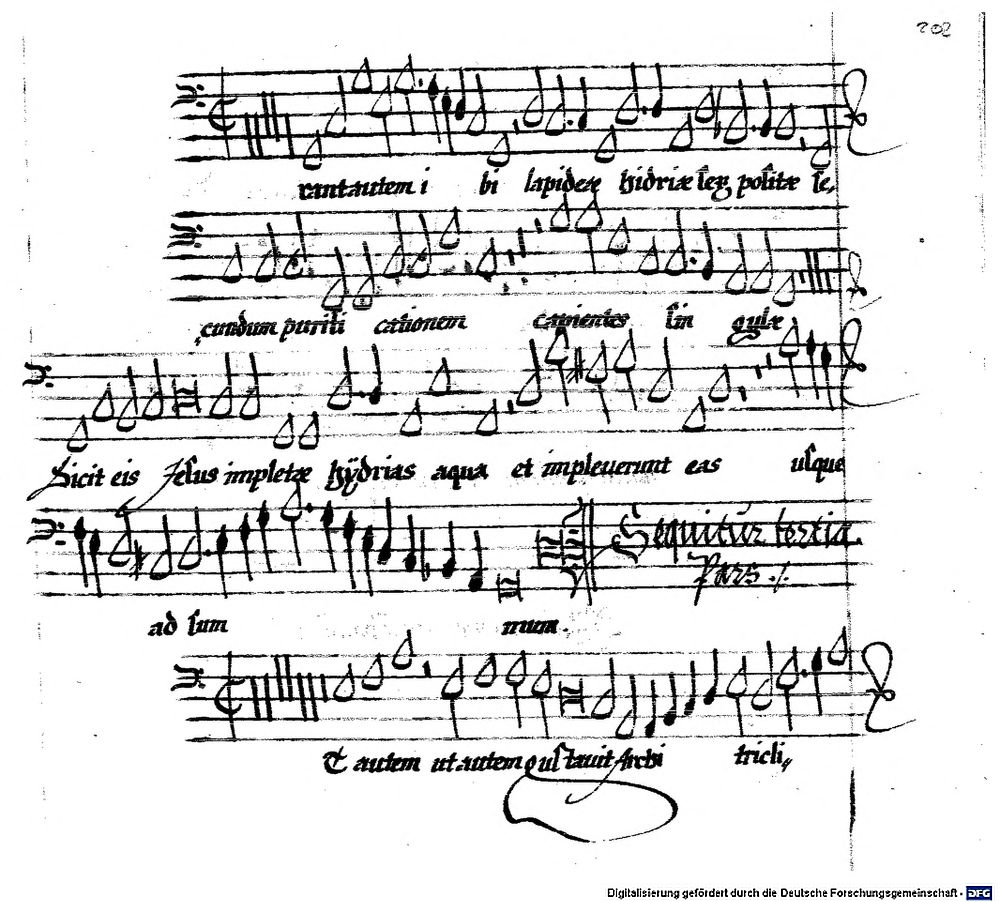 202
rantautem i bi lapideæ hidriæ sex positæ se,
cundum purifi cationem capientes sin gulæ
Dicit eis Jesus impletæ hÿdrias aqua et impleverunt eas usque
Sequitur tertia
Pars ./.
ad sum mum.
Et autem ut autem gustavit Archi tricli,,
Digitalisierung gefördert durch die Deutsche Forschungsgemeinschaft - DFG